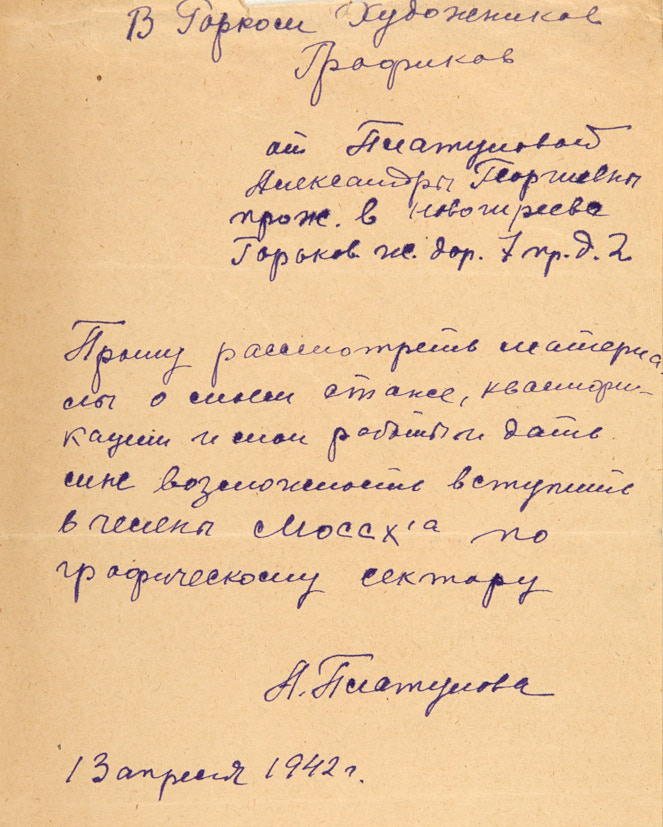 В Горком Художников
Графиков
от Платуновой
Александры Георгиевны
прож. в Новогиреева
Горьков ж. дор. 7 пр. д. 2
Прошу рассмотреть материа-
лы о моем стаже, квалифи-
кации и мои работы и дать
мне возможность вступить
в члены МОССХ'а по
графическому сектору
А. Платунова
13 апреля 1942 г.